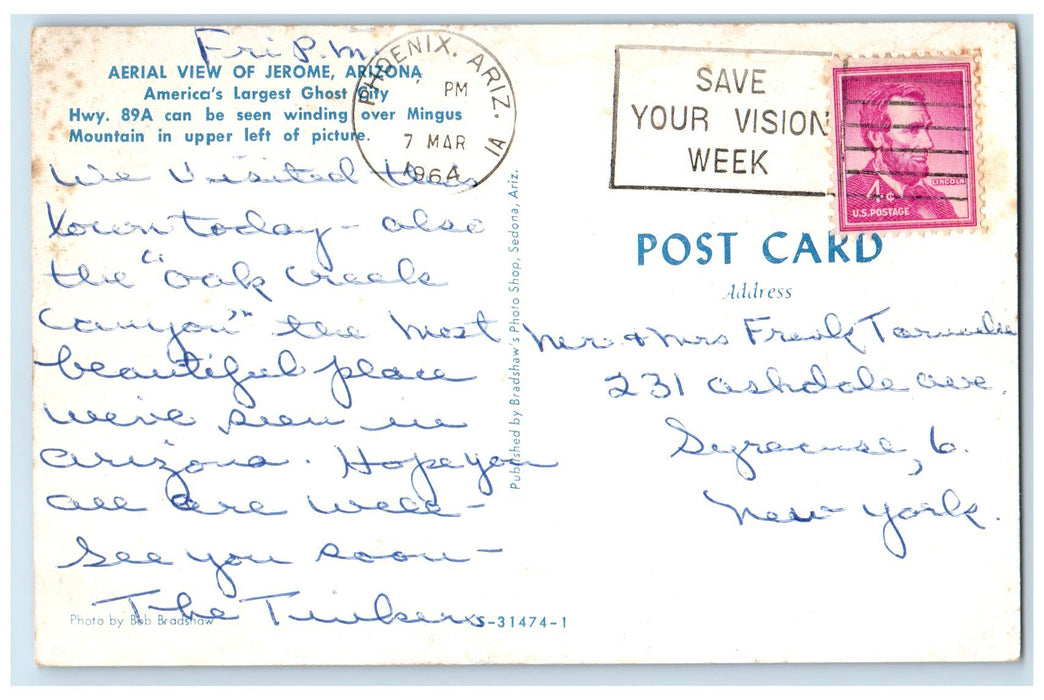 Fri P.M.
AERIAL VIEW OF JEROME, ARIZONA
America's Largest Ghost City
Hwy. 89A can be seen winding over Mingus
Mountain in upper left of picture.
We visited this
town today - also
the "oak creek
canyon" the most
beautiful place
we've seen in
arizona. Hope you
all are well -
See you soon -
The Tinkers
Photo by Bob Bradshaw
S-31474-1
Published by Bradshaw's Photo Shop, Sedona, Ariz.
PHOENIX, ARIZ. 1A
PM
7 MAR
1964
SAVE
YOUR VISION
WEEK
LINCOLN
4¢
U.S. POSTAGE
POST CARD
Address
Mr & Mrs Frank
231 ashdale ave.
Syracuse, 6.
New York.